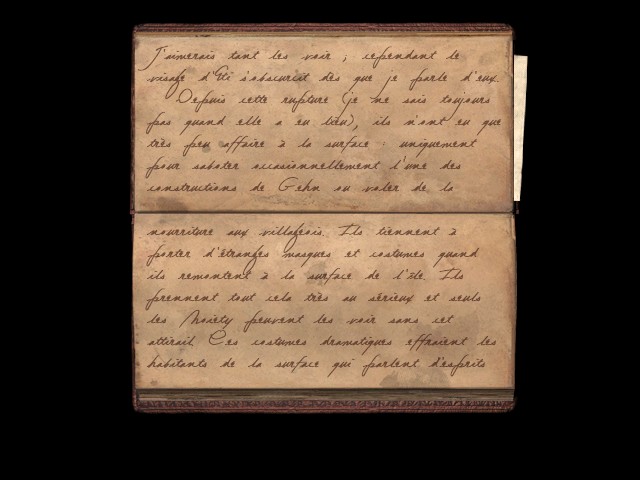 J'aimerais tant les voir ; cependant le
visage d'Eti s'obscurcit dès que je parle d'eux.
Depuis cette rupture (je ne sais toujours
pas quand elle a eu lieu), ils n'ont eu que
très peu affaire à la surface : uniquement
pour saboter occasionnellement l'une des
constructions de Gehn ou voler de la
nourriture aux villageois. Ils tiennent à
porter d'étranges masques et costumes quand
ils remontent à la surface de l'île. Ils
prennent tout cela très au sérieux et seuls
les Moiety peuvent les voir sans cet
attirail. Ces costumes dramatiques effraient les
habitants de la surface qui parlent d'esprits